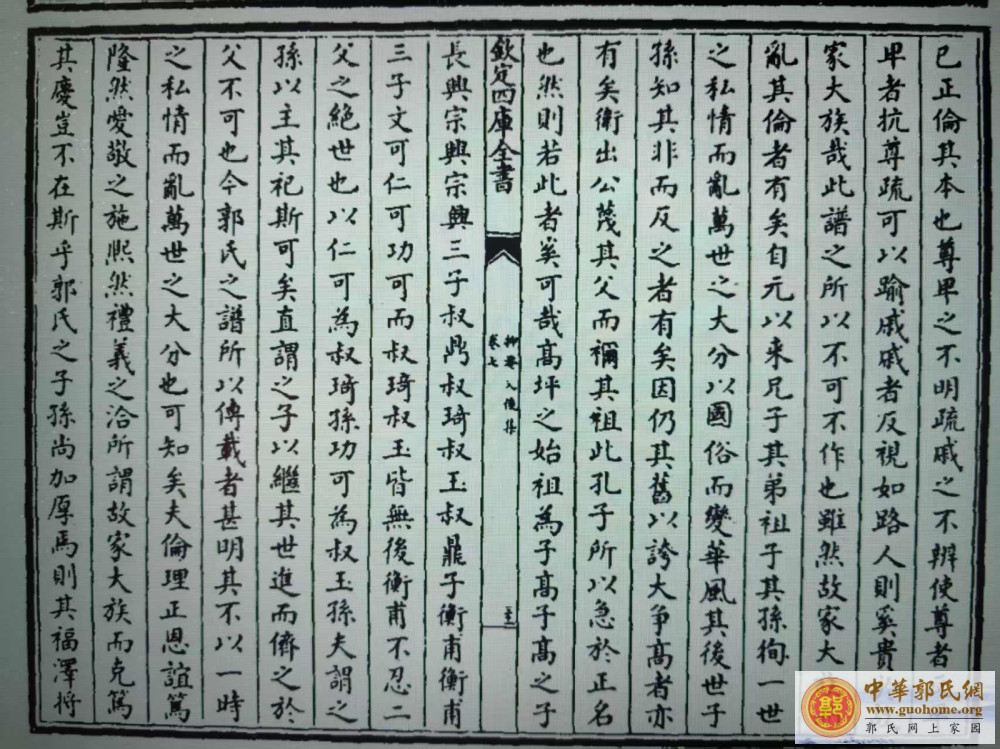 已正倫其本也尊卑之不明疏戚之不辨使尊者
卑者抗尊疏可以踰戚戚者反視如路人則奚貴
家大族哉此譜之所以不可不作也雖然故家大
亂其倫者有矣自元以来兄子其弟祖子其孫徇一世
之私情而亂萬世之大分以國俗而變華風其後世子
孫知其非而反之者有矣因仍其舊以誇大争高者亦
有矣衛出公蔑其父而禰其祖此孔子所以急於正名
也然則若此者奚可哉高坪之始祖為子高子高之子
欽定四庫全書
卷七
長興宗興宗興三子叔鼎叔琦叔玉叔鼎子衡甫衡甫
三子文可仁可功可而叔琦叔玉皆無後衡甫不忍二
父之絶世也以仁可為叔琦孫功可為叔玉孫夫謂之
孫以主其祀斯可矣直謂之子以繼其世進而儕之於
父不可也今郭氏之譜所以傳載者甚明其不以一時
之私情而亂萬世之大分也可知矣夫倫理正恩誼篤
隆然愛敬之施熙然禮義之洽所謂故家大族而克篤
其慶豈不在斯乎郭氏之子孫尚加厚焉則其福澤將
中華郭氏網
www.guohome.org
郭氏网上家园